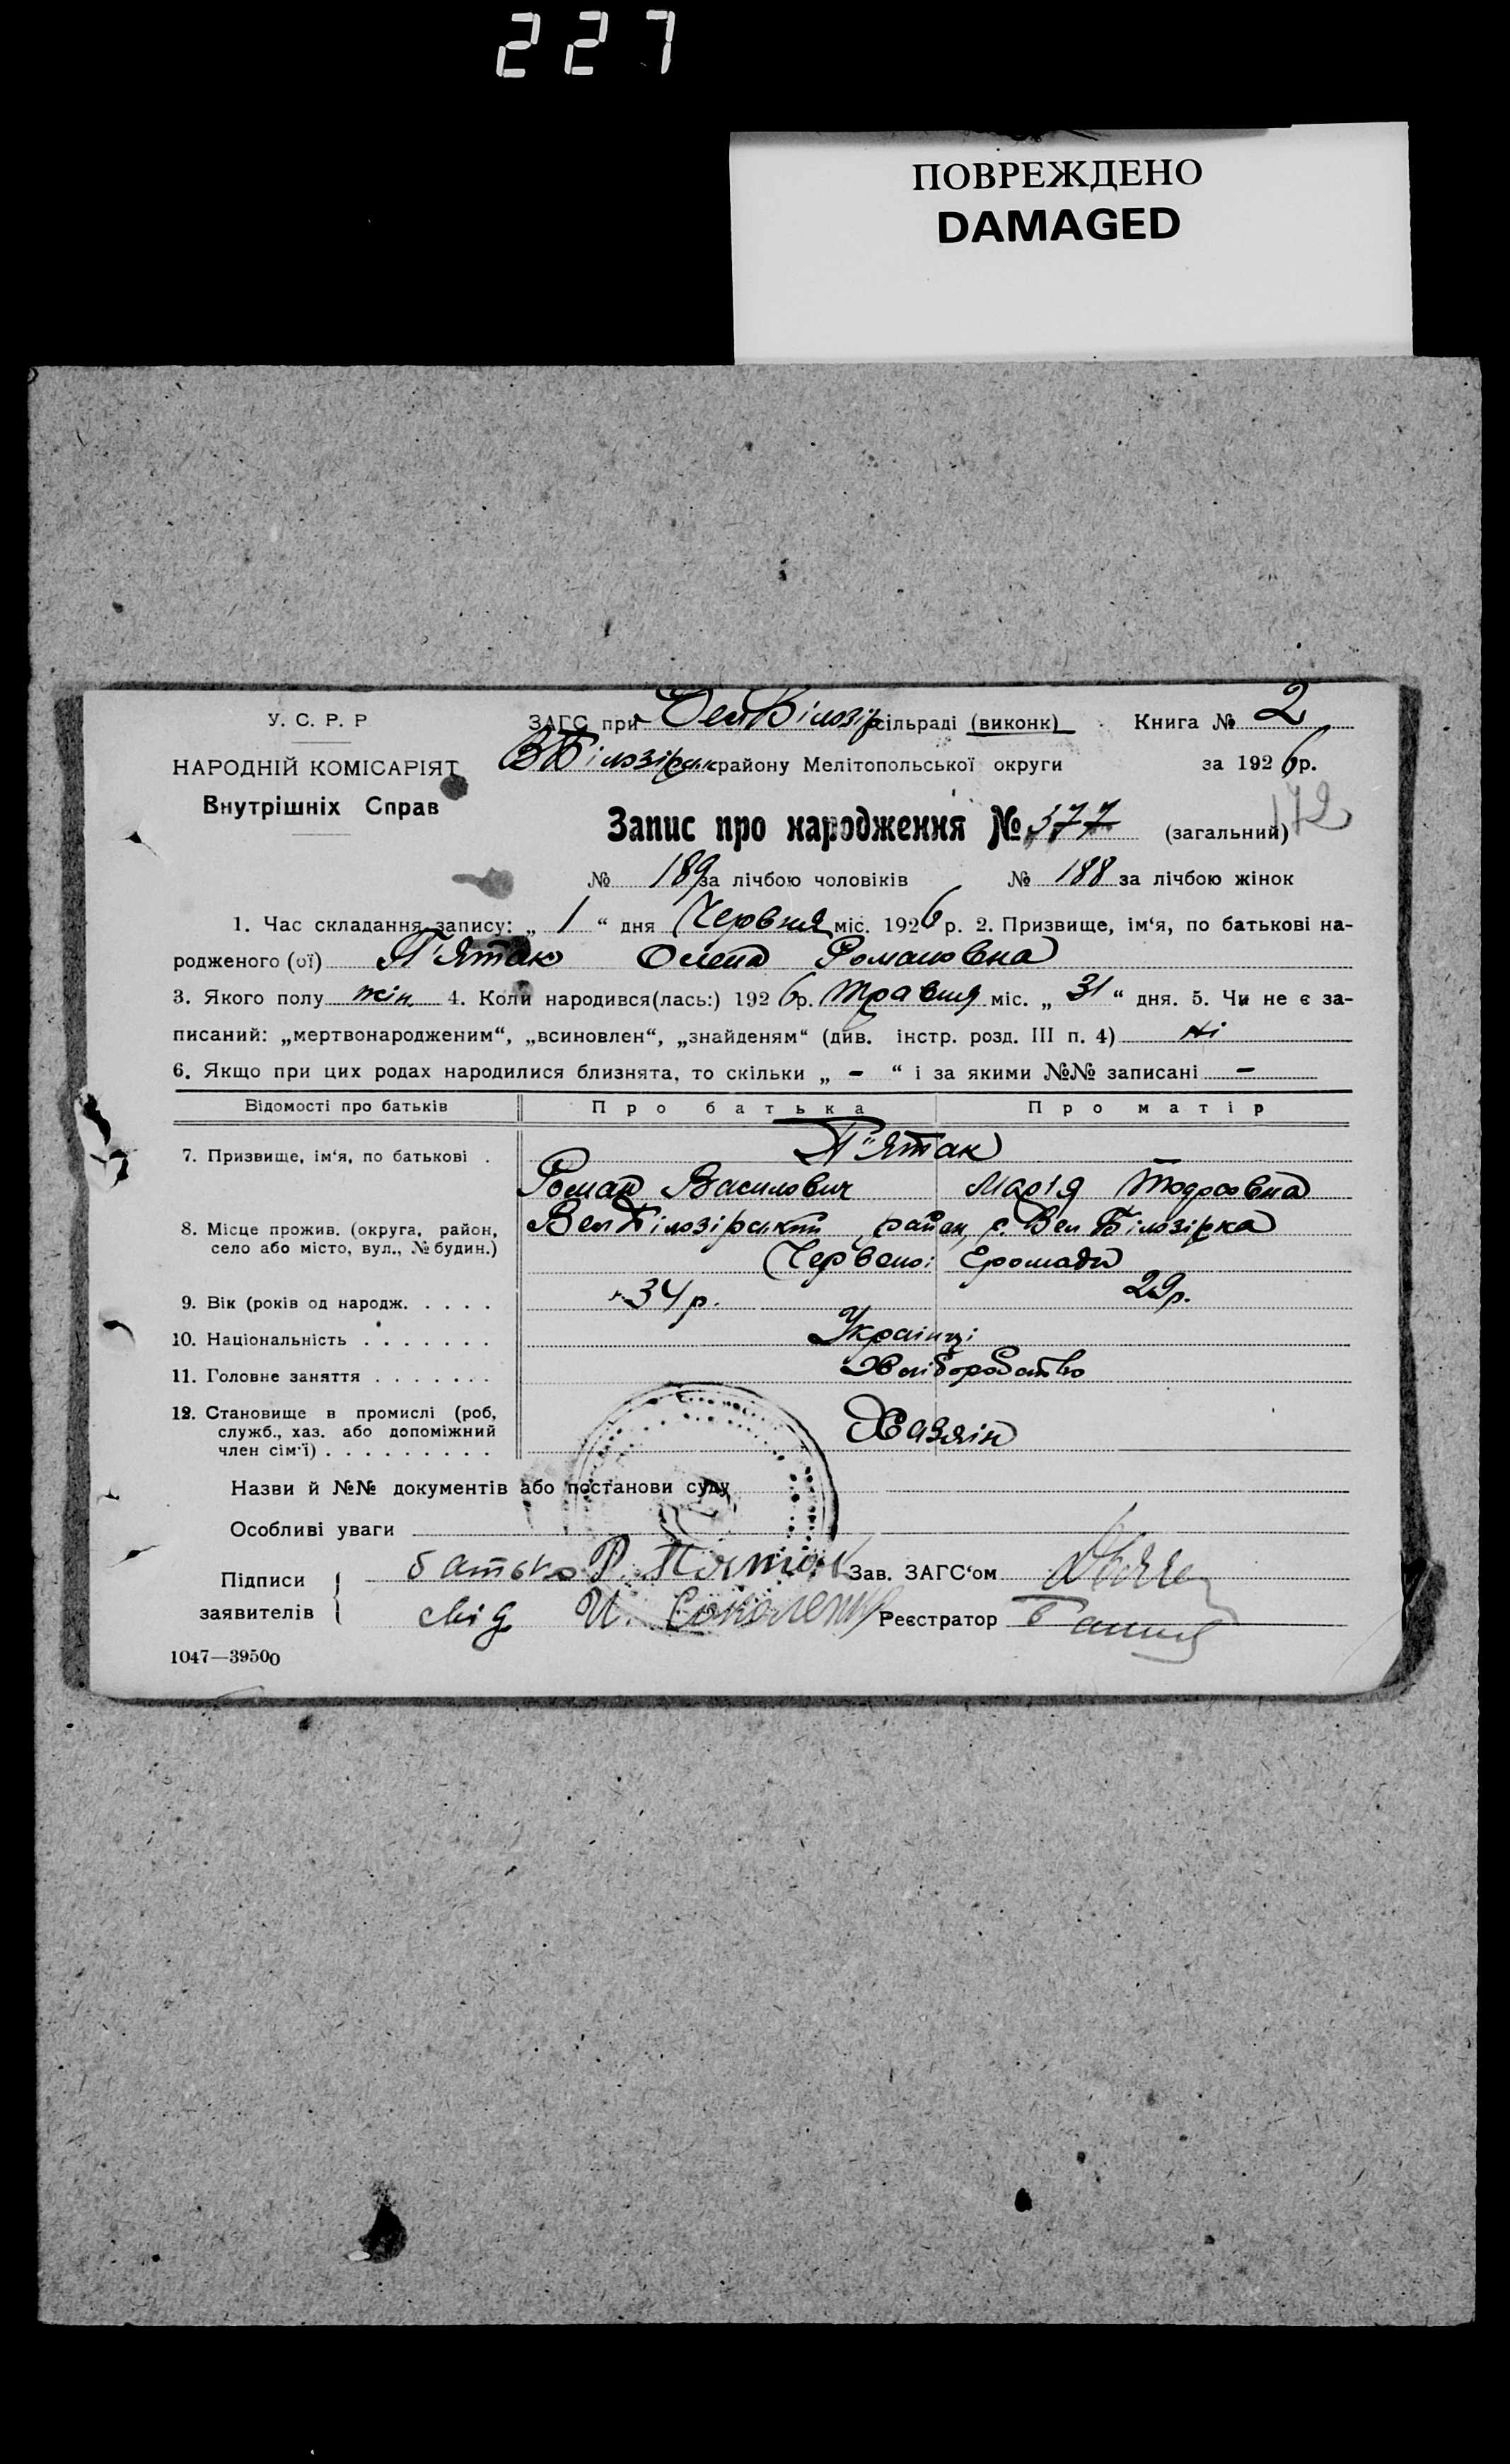 227
ПОВРЕЖДЕНО
DAMAGED
У. С. Р. Р
ЗАГС при Вел Білозір сільраді (виконк) Книга № 2
НАРОДНІЙ КОМІСАРІЯТ
В Білозірськ району Мелітопольської округи за 1926 р.
Внутрішніх Справ
Запис про народження № 377 (загальний) 172
№ 189 за лічбою чоловіків № 188 за лічбою жінок
1. Час складання запису: „ 1 “ дня Червня міс. 1926 р. 2. Призвище, ім‘я, по батькові на-
родженого (ої) П'ятак Олена Романовна
3. Якого полу жін. 4. Коли народився(лась:) 1926 р. Травня міс. „ 31 “ дня. 5. Чи не є за-
писаний: „мертвонародженим“, „всиновлен“, „знайденям“ (див. інстр. розд. III п. 4) Ні
6. Якщо при цих родах народилися близнята, то скільки „ - “ і за якими №№ записані -
Відомості про батьків Про батька Про матір
7. Призвище, ім‘я, по батькові . П"ятак
Роман Василович Марія Тодровна
8. Місце прожив. (округа, район, село або місто, вул., № будин.) Вел Білозірський район, с. Вел Білозірка
Червоної Громади
9. Вік (років од народж. . . . . 34 р. 29 р.
10. Національність . . . . . . . Українці
11. Головне заняття . . . . . . . Хліборобство
12. Становище в промислі (роб,
служб., хаз. або допоміжний
член сім‘ї) . . . . . . . . . Хазяїн
Назви й №№ документів або постанови суду
Особливі уваги
Підписи заявителів батько Р. Пятак Зав. ЗАГС‘ом
свід И. Реєстратор
1047—39500